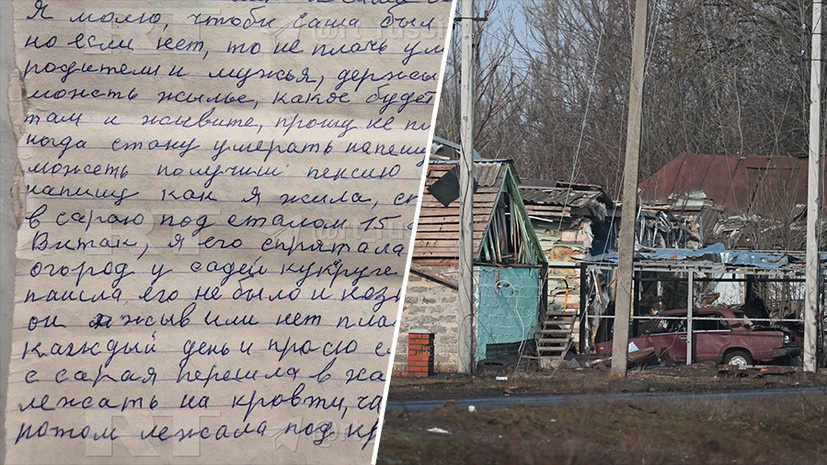 Я молю, чтоби саша был
но если нет, то не плачь ум
родители и мужья, держы
можеть жылье, какое будет
там и жывите, прошу не пл
когда стану умерать напешу
можеть получиш пенсию
напишу как я жила, сп
в сараю под сталом 15
Виктак, я его спрятала
огород у садеи кукруге
пашла его не было и козы
он жыв или нет пла
каждый день и просю с
с сарая перешла в ха
лежать на кровти, ча
ротом лежала под кр